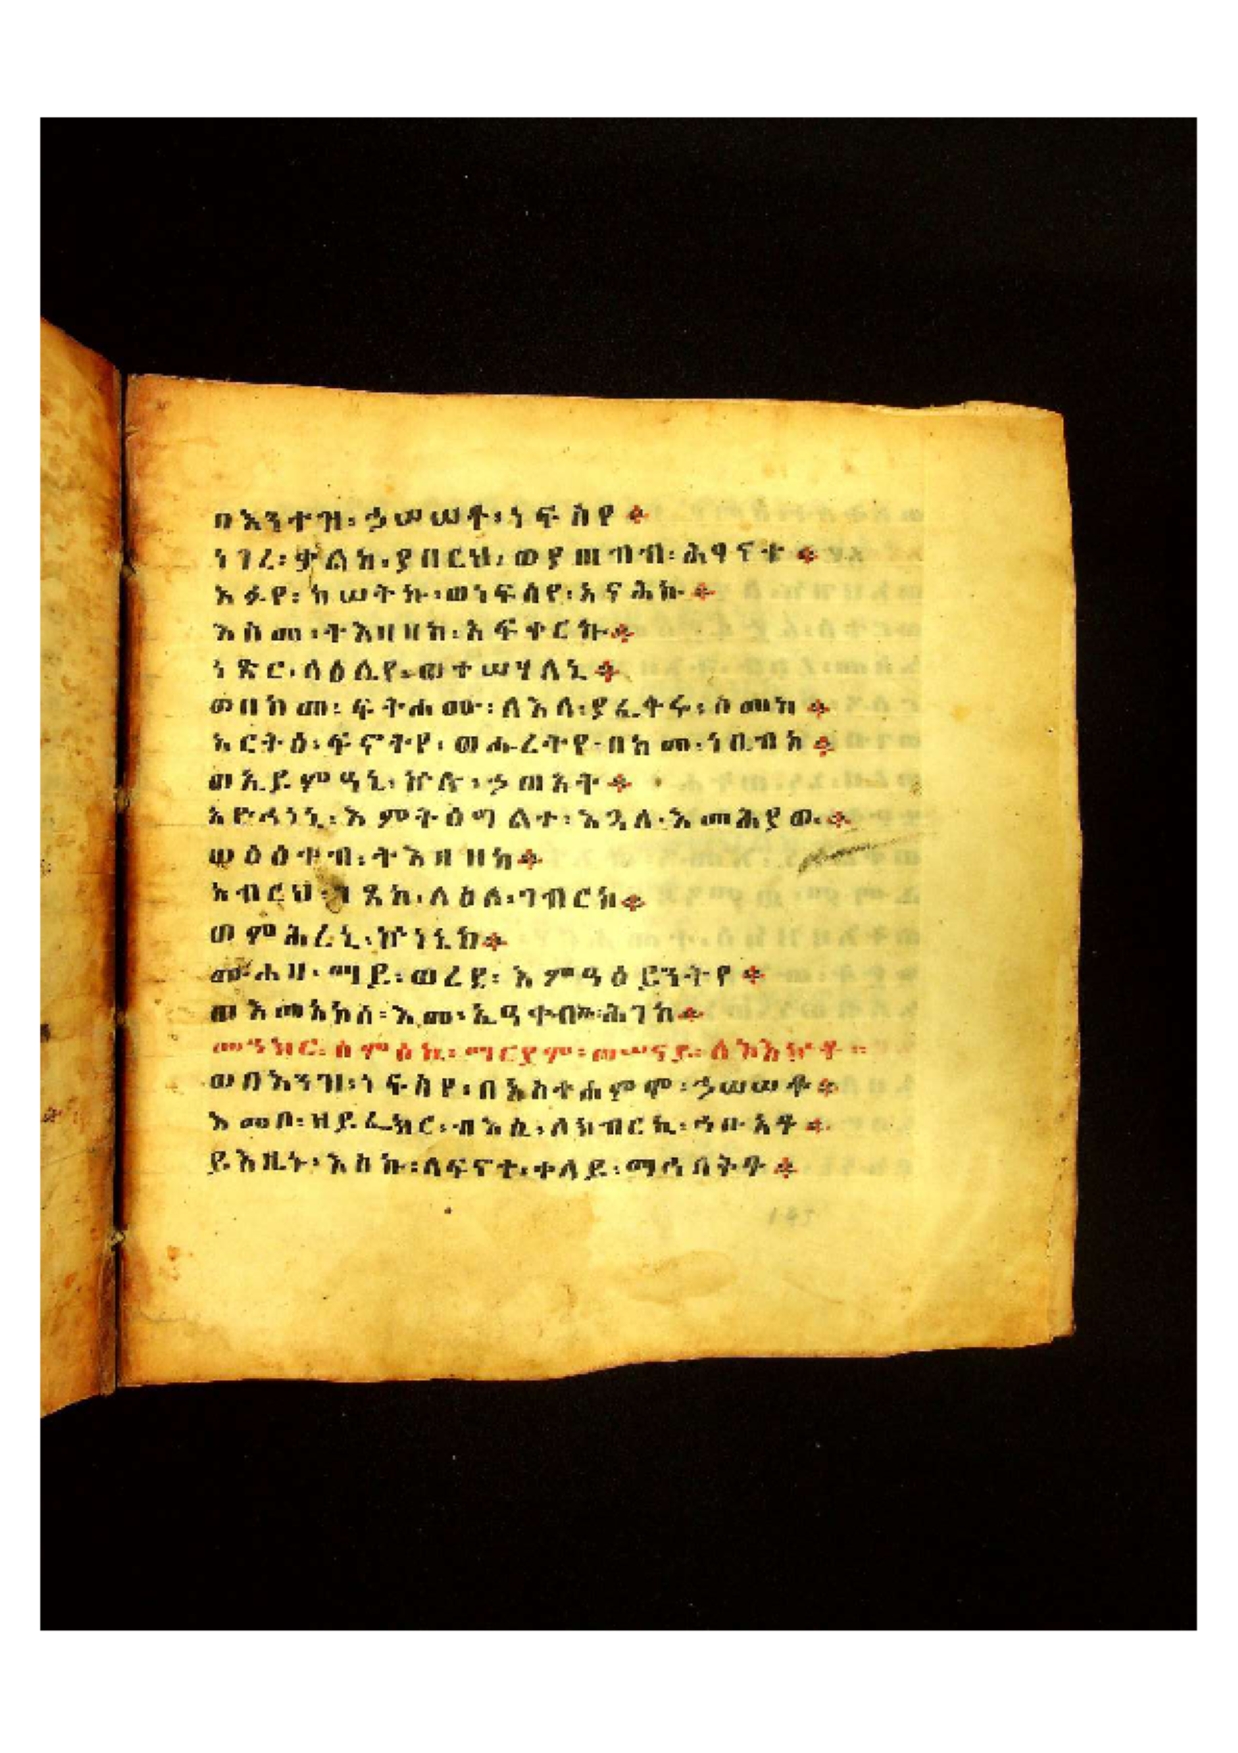 በእንተዝ፡ ኃሠሠቶ፡ ነፍስየ ።
ነገረ፡ ቃልከ፡ ያበርህ፡ ወያጠብብ፡ ሕፃናተ ።
አፉየ፡ ከሠትኩ፡ ወነፍስየ፡ አናሕኩ ።
እስመ፡ ትእዛዘከ፡ አፍቀርኩ ።
ነጽር፡ ላዕሌየ፡ ወተሠሃለኒ ።
ወበከመ፡ ፍትሐሙ፡ ለእለ፡ ያፈቅሩ፡ ስመከ ።
አርትዕ፡ ፍኖትየ፡ ወሑረትየ፡ በከመ፡ ነቢብከ ።
ወኢይምዓኒ፡ ኵሉ፡ ኃጠአት ።
አድኅነኒ፡ እምትዕግልተ፡ እጓለ፡ እመሕያው ።
ወዕዕቀብ፡ ትእዛዘከ ።
አብርህ፡ ገጸከ፡ ላዕለ፡ ገብርከ ።
ወምሕረኒ፡ ኵነኔከ ።
ሙሐዘ፡ ማይ፡ ወረደ፡ እምዓዕይንትየ ።
ወእመአከሰ፡ እሙ፡ ኢዓቀብኩ፡ ሕገከ ።
መንክር፡ ስምዕኪ፡ ማርያም፡
ወበእንዝ፡ ነፍስየ፡ በአስተሐምሞ፡ ኃሠሠቶ ።
እመቦ፡ ዘይፈክር፡ ብእሲ፡ ለክብርኪ፡ ኅቡአቶ ።
ይእዜኑ፡ እስኩ፡ ለፍኖተ፡ ቀላይ፡ ማዕበትቶ ።